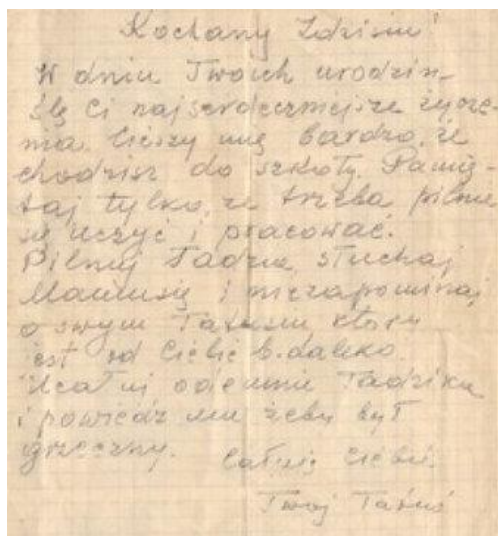 Kochany Zdzisiu!
W dniu Twoich urodzin
ślę Ci najserdeczniejsze życze-
nia. Cieszy mię bardzo, że
chodzisz do szkoły. Pamię-
taj tylko, że trzeba pilnie
się uczyć i pracować.
Pilnuj Tadzia, słuchaj
Mamusię i niezapominaj
o swym Tatusiu, który
jest od Ciebie b. daleko.
Ucałuj odemnie Tadzika
i powiedz mu żeby był
grzeczny. Całuję Ciebie.
Twój Tatuś